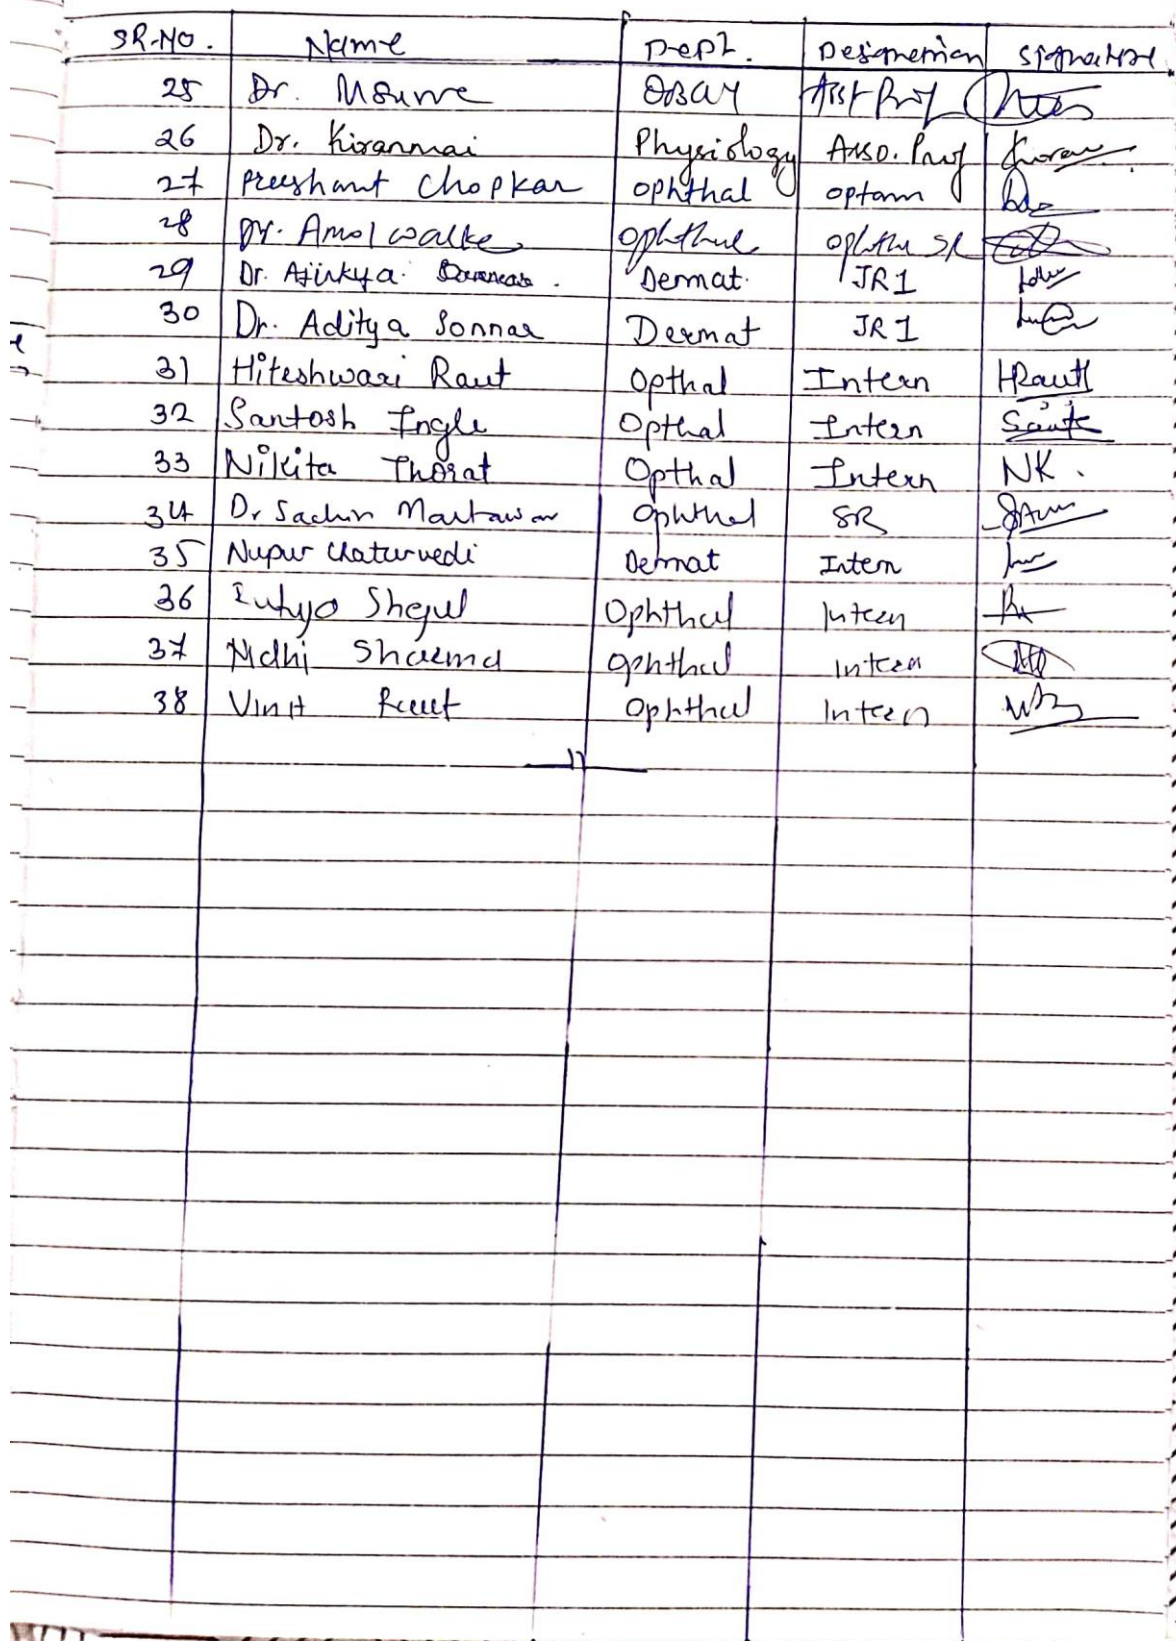 SR.NO. Name Dept. Designation Signature
25 Dr. OBGY Asst Prof
26 Dr. Kiranmai Physiology Asso. Prof Kiran
27 Preeshant Chopkar Ophthal Optom
28 Dr. Amol walke Ophthal Ophthal SR
29 Dr. Ajinkya Dermat. JR1
30 Dr. Aditya Sonnar Dermat JR1
31 Hiteshwari Raut Opthal Intern HRaut
32 Santosh Ingle Opthal Intern
33 Nikita Thorat Opthal Intern NK.
34 Dr Sachin Ophthal SR
35 Nupur Chaturvedi Dermat Intern
36 Ophthal Intern
37 Nidhi Sharma Ophthal Intern
38 Vinit Raut Ophthal Intern